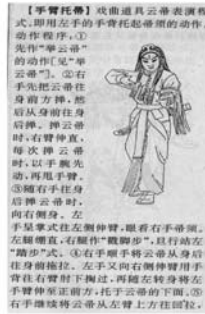 【手臂托帚】 戏曲道具云帚表演程
式,即用左手的手背托起帚须的动作。
动作程序:①
先作“举云帚”
的动作[见“举
云帚”]。②右
手先把云帚往
身前方掸,然
后从身前往身
后掸。掸云帚
时,右臂伸直,
每次掸云帚
时,以手腕先
动,再甩手臂。
③随右手往身
后掸云帚时,
向右侧身。左
手呈掌式往左侧伸臂,眼看右手帚须。
左腿绷直,右腿作“戳脚步”,旦行站左
“踏步”式。④右手顺手将云帚从身后
往身前拖拉。左手又向右侧伸臂用手
背往右臂肘下掏过,再随左转身将左
手臂伸至正前方,托于云帚的下面。⑤
右手继续将云帚从左臂上方往回拉,